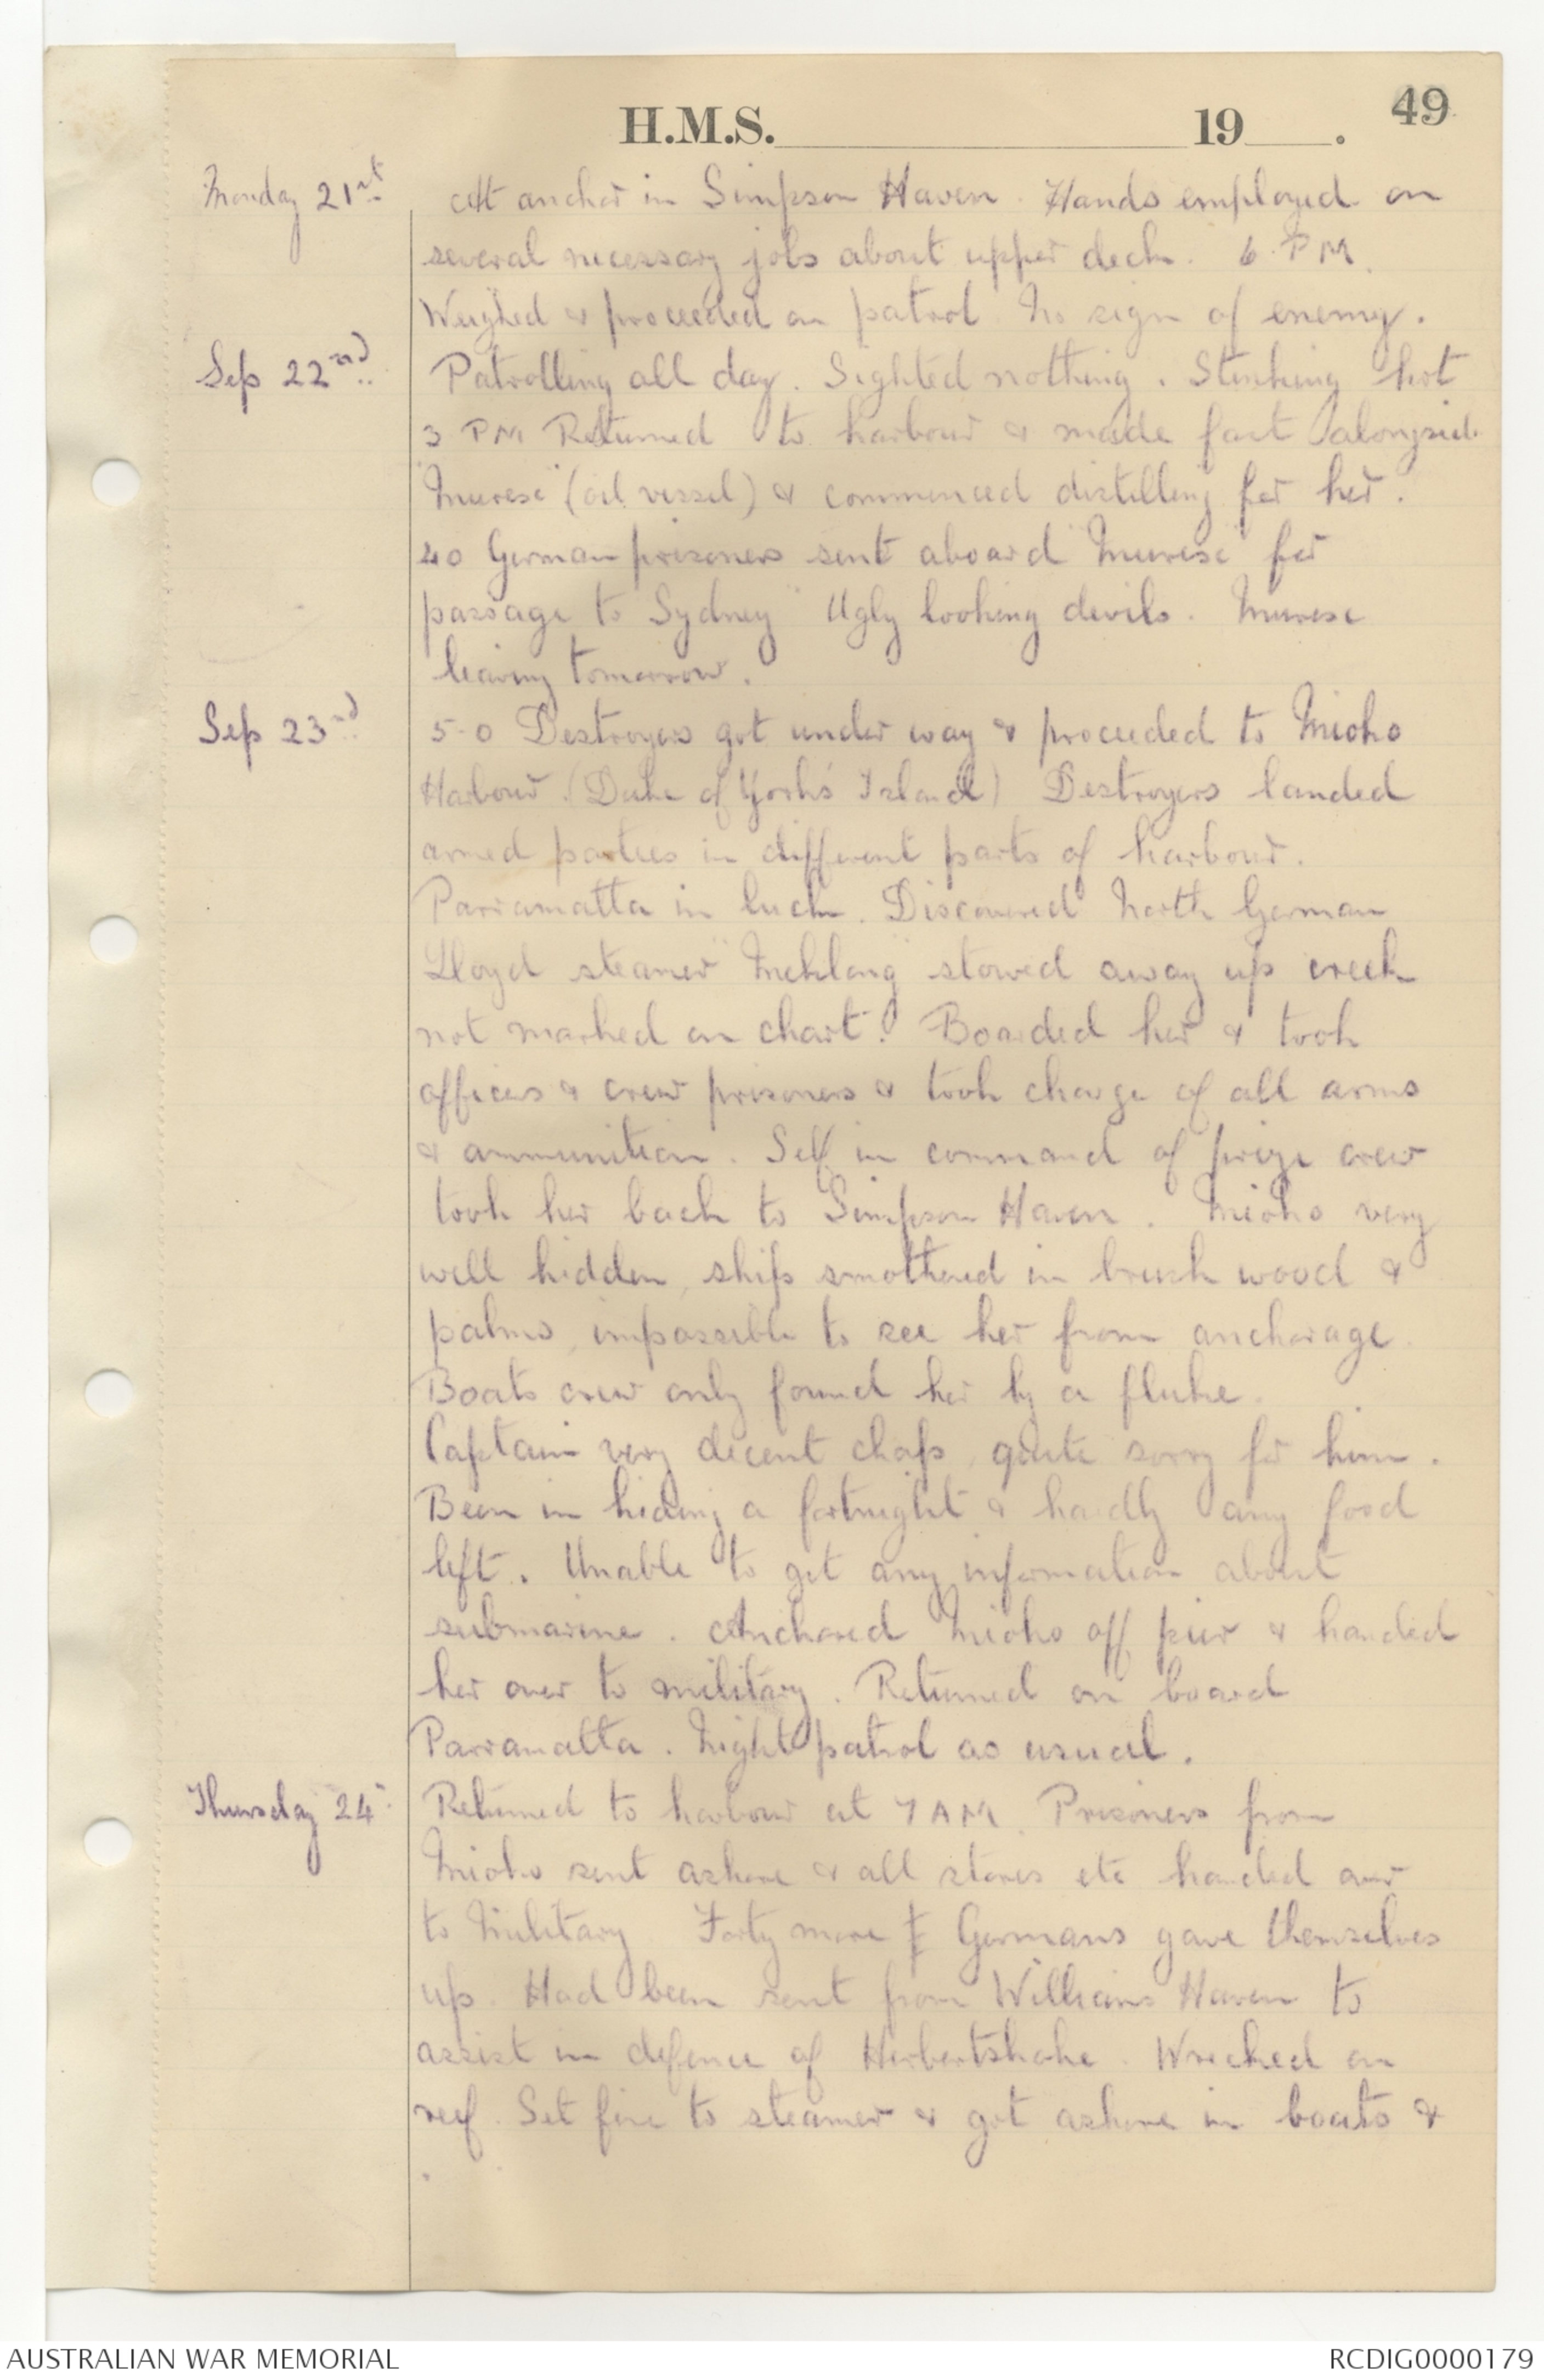 H.M.S. 19 . 49
Monday 21st At anchor in Simpson Haven. Hands employed on
several necessary jobs about upper deck. 6 PM.
Weighed & proceeded on patrol. No sign of enemy.
Sep 22nd Patrolling all day. Sighted nothing. Stinking hot
3 PM Returned to harbour & made fast alongside
"Murex" (oil vessel) & commenced distilling for her.
40 German prisoners sent aboard "Murex" for
passage to Sydney. Ugly looking devils. Murex
leaving tomorrow.
Sep 23rd 5-0 Destroyers got under way & proceeded to Mioko
Harbour. (Duke of York's Island) Destroyers landed
armed parties in different parts of harbour.
Parramatta in luck. Discovered North German
Lloyd steamer "Meklong" stowed away up creek
not marked on chart. Boarded her & took
officers & crew prisoners & took charge of all arms
& ammunition. Self in command of prize crew
took her back to Simpson Haven. Mioko very
well hidden, ship smothered in brush wood &
palms, impossible to see her from anchorage.
Boats crew only found her by a fluke.
Captain very decent chap, quite sorry for him.
Been in hiding a fortnight & hardly any food
left. Unable to get any information about
submarine. Anchored Mioko off pier & handed
her over to military. Returned on board
Parramatta. Night patrol as usual.
Thursday 24 Returned to harbour at 7 AM. Prisoners from
Mioko sent ashore & all stores etc handed over
to Military Forty more Germans gave themselves
up. Had been sent from Williams Haven to
assist in defence of Herbertshohe. Wrecked on
reef. Set fire to steamer & got ashore in boats &
AUSTRALIAN WAR MEMORIAL RCDIG0000179